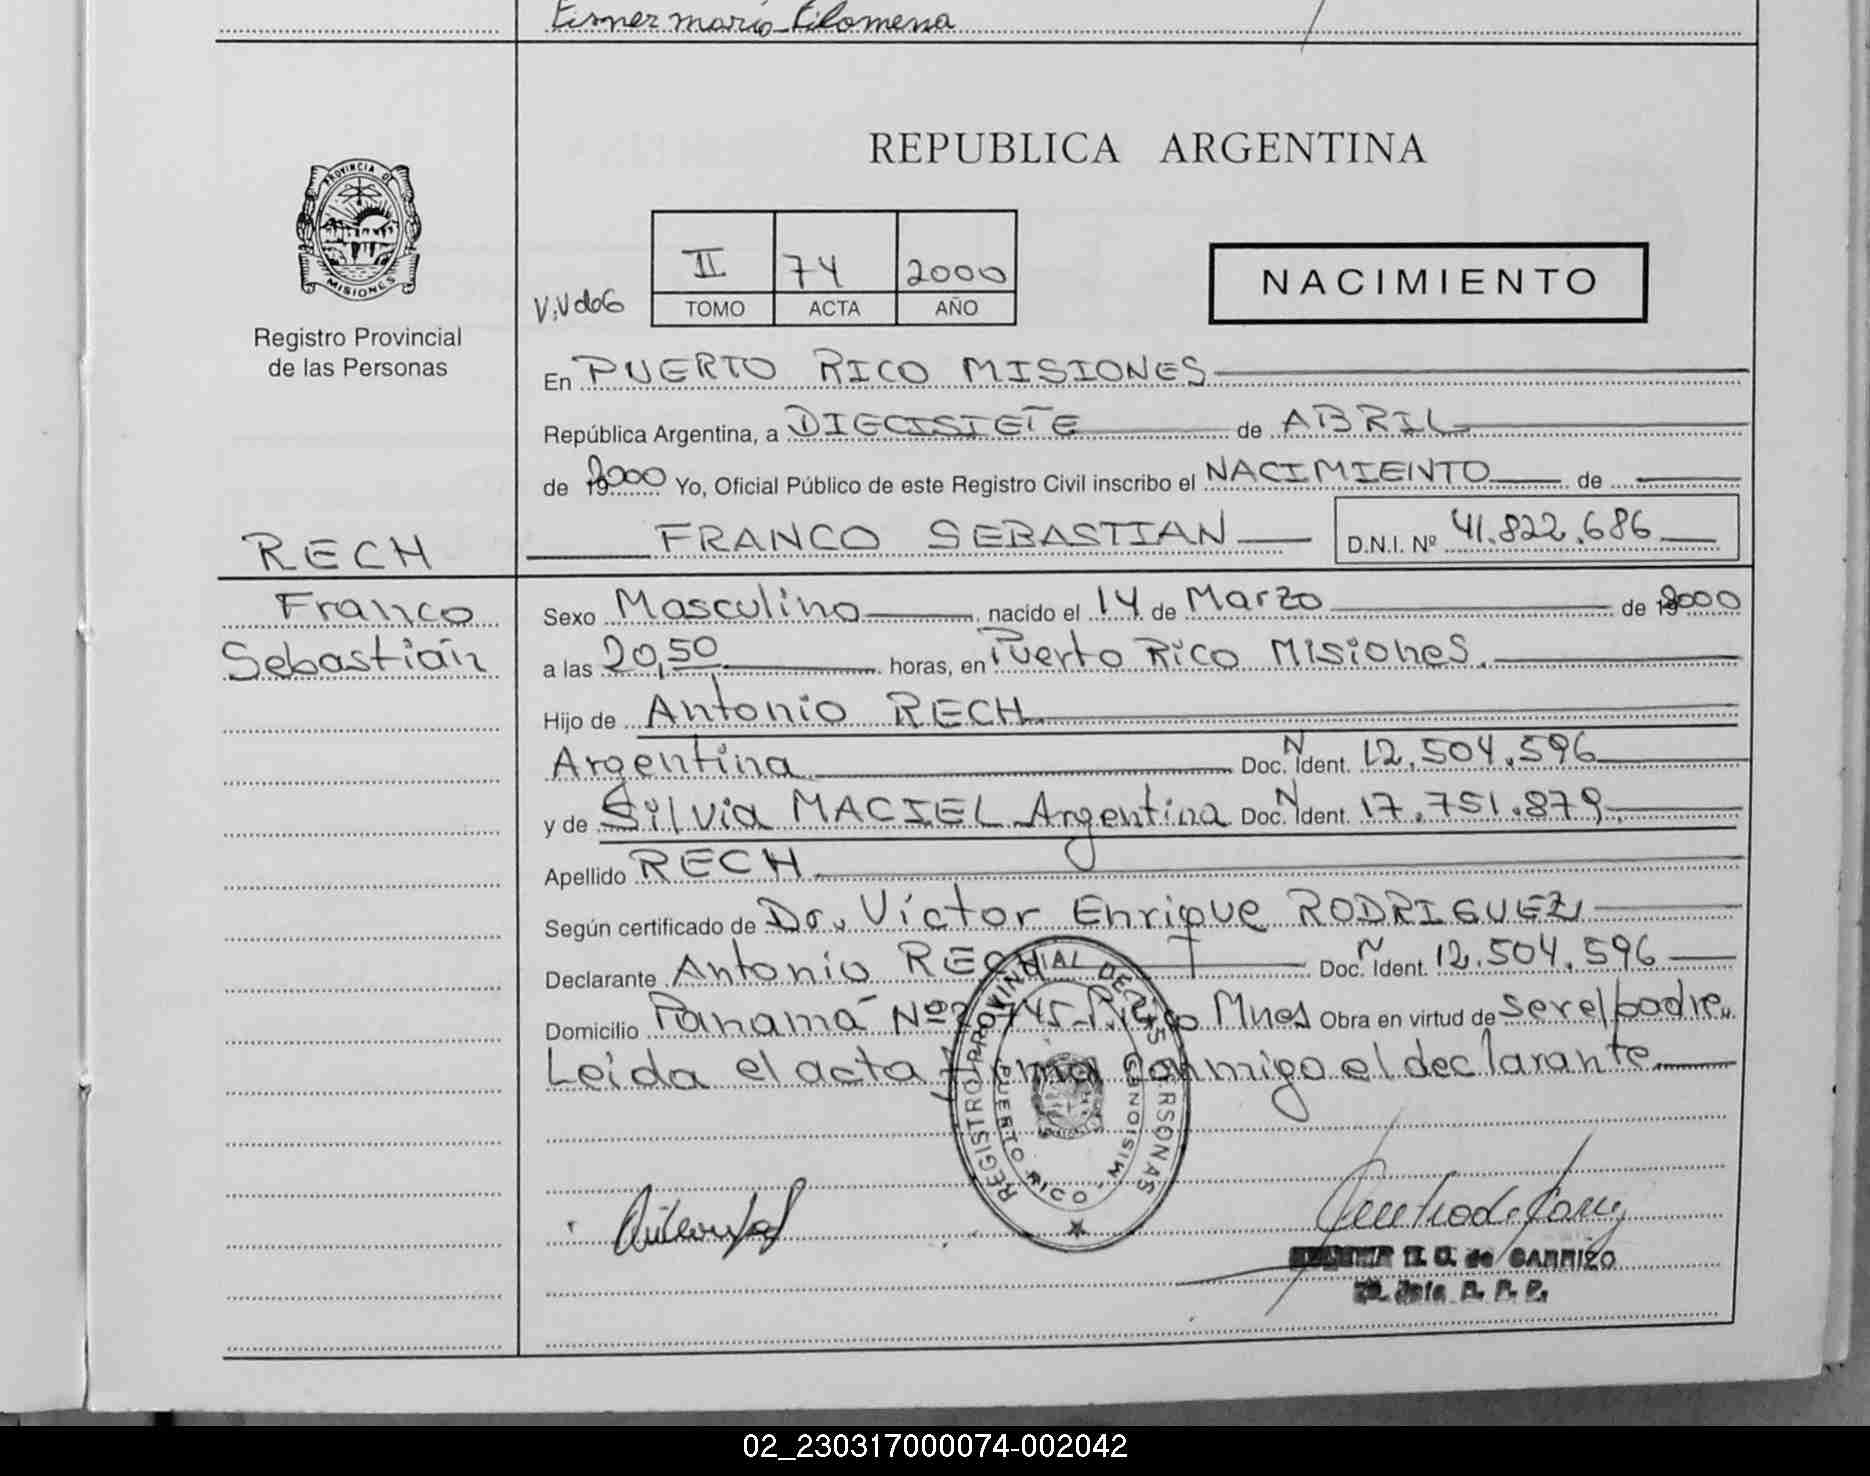 Eisner maria Filomena
REPUBLICA ARGENTINA
PROVINCIA DE
MISIONES
Registro Provincial
de las Personas
II 74 2000
TOMO ACTA AÑO
NACIMIENTO
En PUERTO RICO MISIONES
República Argentina, a DIECISIETE de ABRIL
de 2000 Yo, Oficial Público de este Registro Civil inscribo el NACIMIENTO de
RECH
FRANCO SEBASTIAN D.N.I. Nº 41.822.686
Franco
Sebastián
Sexo Masculino nacido el 14 de Marzo de 2000
a las 20,50 horas, en Puerto Rico Misiones.
Hijo de Antonio RECH
Argentina Doc. N Ident. 12.504.596
y de Silvia MACIEL Argentina Doc. N Ident. 17.751.879
Apellido RECH
Según certificado de Dr. Víctor Enrique RODRIGUEZ
Declarante Antonio RECH Doc. N Ident. 12.504.596
Domicilio Panamá Nº Rico Mnes Obra en virtud de ser el padre.
Leida el acta firma conmigo el declarante
REGISTRO PROVINCIAL DE LAS PERSONAS
PUERTO RICO - MISIONES
de CARRIZO
02_230317000074-002042